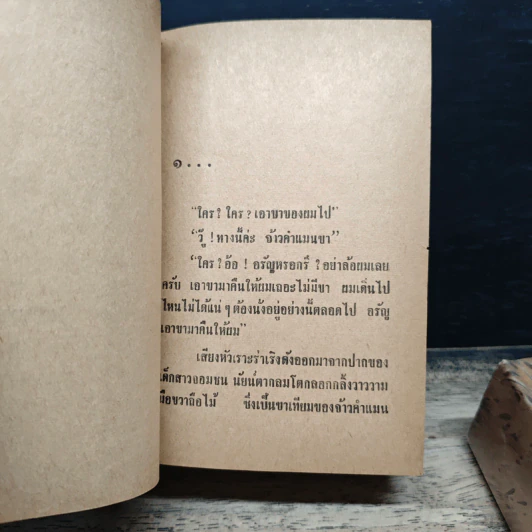 ๑...
“ใคร? ใคร? เอาขาของผมไป”
“วู๊! ทางนี้ค่ะ จ้าวคำแมนขา”
“ใคร? อ้อ! อรัญหรอกรึ? อย่าล้อผมเลย
ครับ เอาขามาคืนให้ผมเถอะไม่มีขา ผมเดินไป
ไหนไม่ได้แน่ ๆ ต้องนั่งอยู่อย่างนี้ตลอดไป อรัญ
เอาขามาคืนให้ผม”
เสียงหัวเราะร่าเริงดังออกมาจากปากของ
เด็กสาวจอมซน นัยน์ตากลมโตกลอกกลิ้งวาววาม
มือขวาถือไม้ ซึ่งเป็นขาเทียมของจ้าวคำแมน